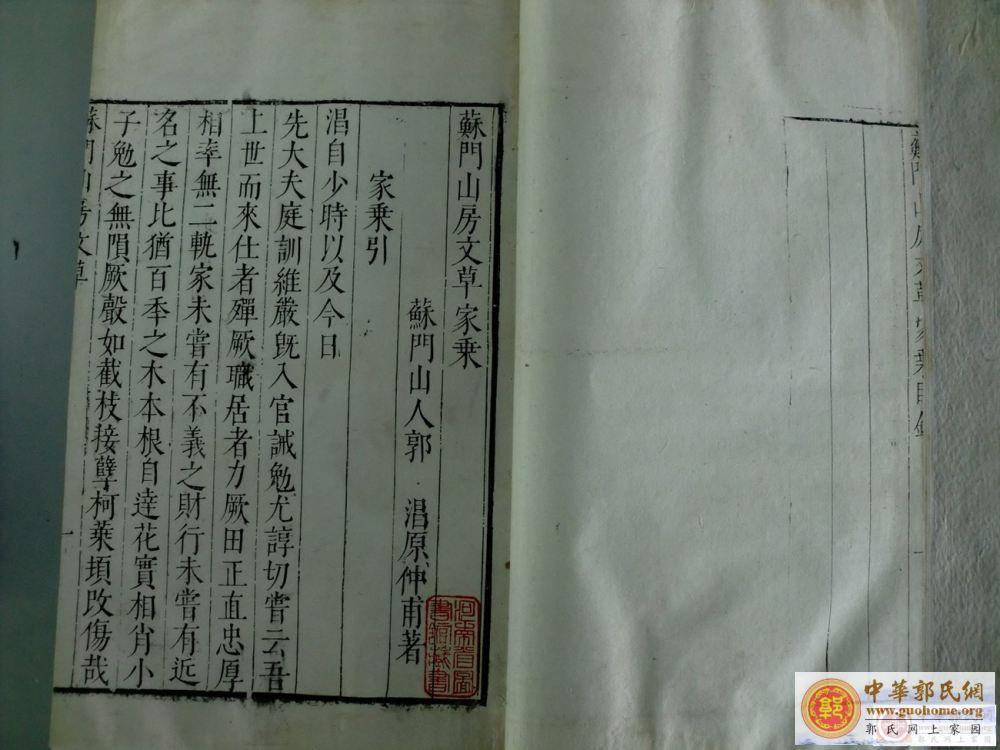 蘇門山房文草家乘目錄
一
蘇門山房文草 家乘
蘇門山人郭 淐原仲甫著
家乘引
淐自少時以及今日
先大夫庭訓維嚴旣入官誡勉尤諄切嘗云吾
上世而來仕者殫厥職居者力厥田正直忠厚
相率無二軌家未嘗有不義之財行未嘗有近
名之事比猶百季之木本根自達花實相肖小
子勉之無隕厥聲如截枝接孽柯葉頃改傷哉
蘇門山房文草
一
河南省圖
書館藏書
中華郭氏網
www.guohome.org
郭氏网上家园